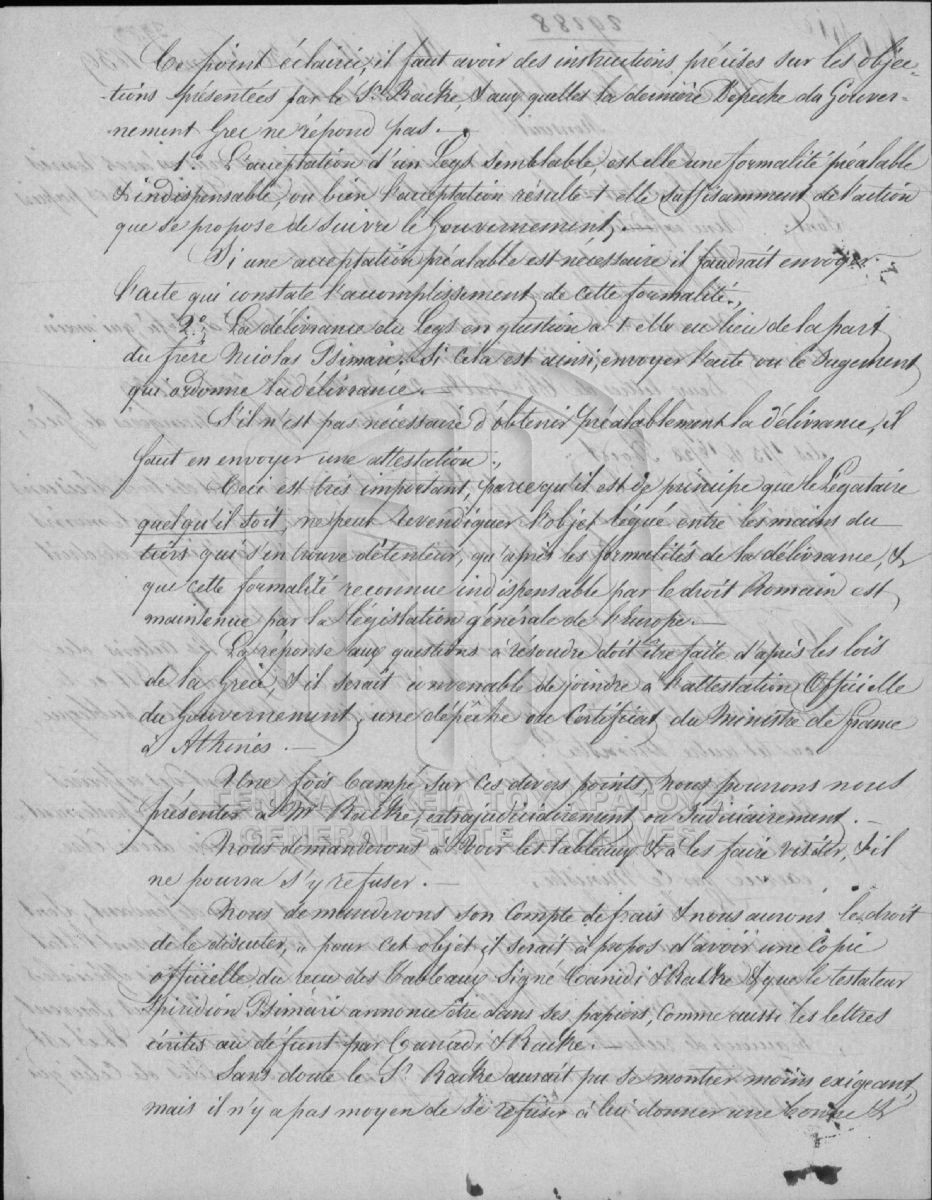 29188
Ce point éclairci, il faut avoir des instructions précises sur les objec-
tions présentées par le Sr. Racke, & aux quelles la dernière Dépêche du Gouver-
nement Grec ne répond pas. —
1.° L'acceptation d'un Legs semblable, est elle une formalité préalable
& indispensable, ou bien l'acceptation résulte t'elle suffisamment de l'action
que se propose de suivre le Gouvernement.
Si une acceptation préalable est nécessaire il faudrait envoyer
l'acte qui constate l'accomplissement de cette formalité.,
2.° La délivrance du Legs en question a t'elle eu lieu de la part
du frère Nicolas Psimari. Si cela est ainsi, envoyer l'acte ou le Jugement
qui ordonne la délivrance. —
S'il n'est pas nécessaire d'obtenir préalablement la délivrance, il
faut en envoyer une attestation.,
Ceci est très important, parce qu'il est de principe que le Légataire
quelqu'il soit, ne peut revendiquer l'objet légué entre les mains du
tiers qui s'en trouve détenteur, qu'après les formalités de la délivrance, &
que cette formalité reconnue indispensable par le droit Romain est
maintenue par la législation générale de l'Europe. —
La réponse aux questions à résoudre doit être faite d'après les lois
de la Grèce, & il serait convenable de joindre à l'attestation Officielle
du Gouvernement, une dépêche ou Certificat du Ministre de France
à Athènes. —
Une fois campé sur ces divers points, nous pourrons nous
présenter à Mr Racke, extrajudiciairement ou Judiciairement. —
Nous demanderons à voir les tableaux & à les faire visiter, & il
ne pourra s'y refuser. —
Nous demanderons son Compte de frais & nous aurons le droit
de le discuter, pour cet objet il serait à propos d'avoir une Copie
officielle du reçu des Tableaux signé Canadi & Racke & que le testateur
Spiridion Psimari annonce être dans ses papiers, comme aussi les lettres
écrites au défunt par Canadi & Racke. —
Sans doute le Sr. Racke aurait pu se montrer moins exigeant,
mais il n'y a pas moyen de se refuser à lui donner une bonne &
ΓΕΝΙΚΑ ΑΡΧΕΙΑ ΤΟΥ ΚΡΑΤΟΥΣ
GENERAL STATE ARCHIVES